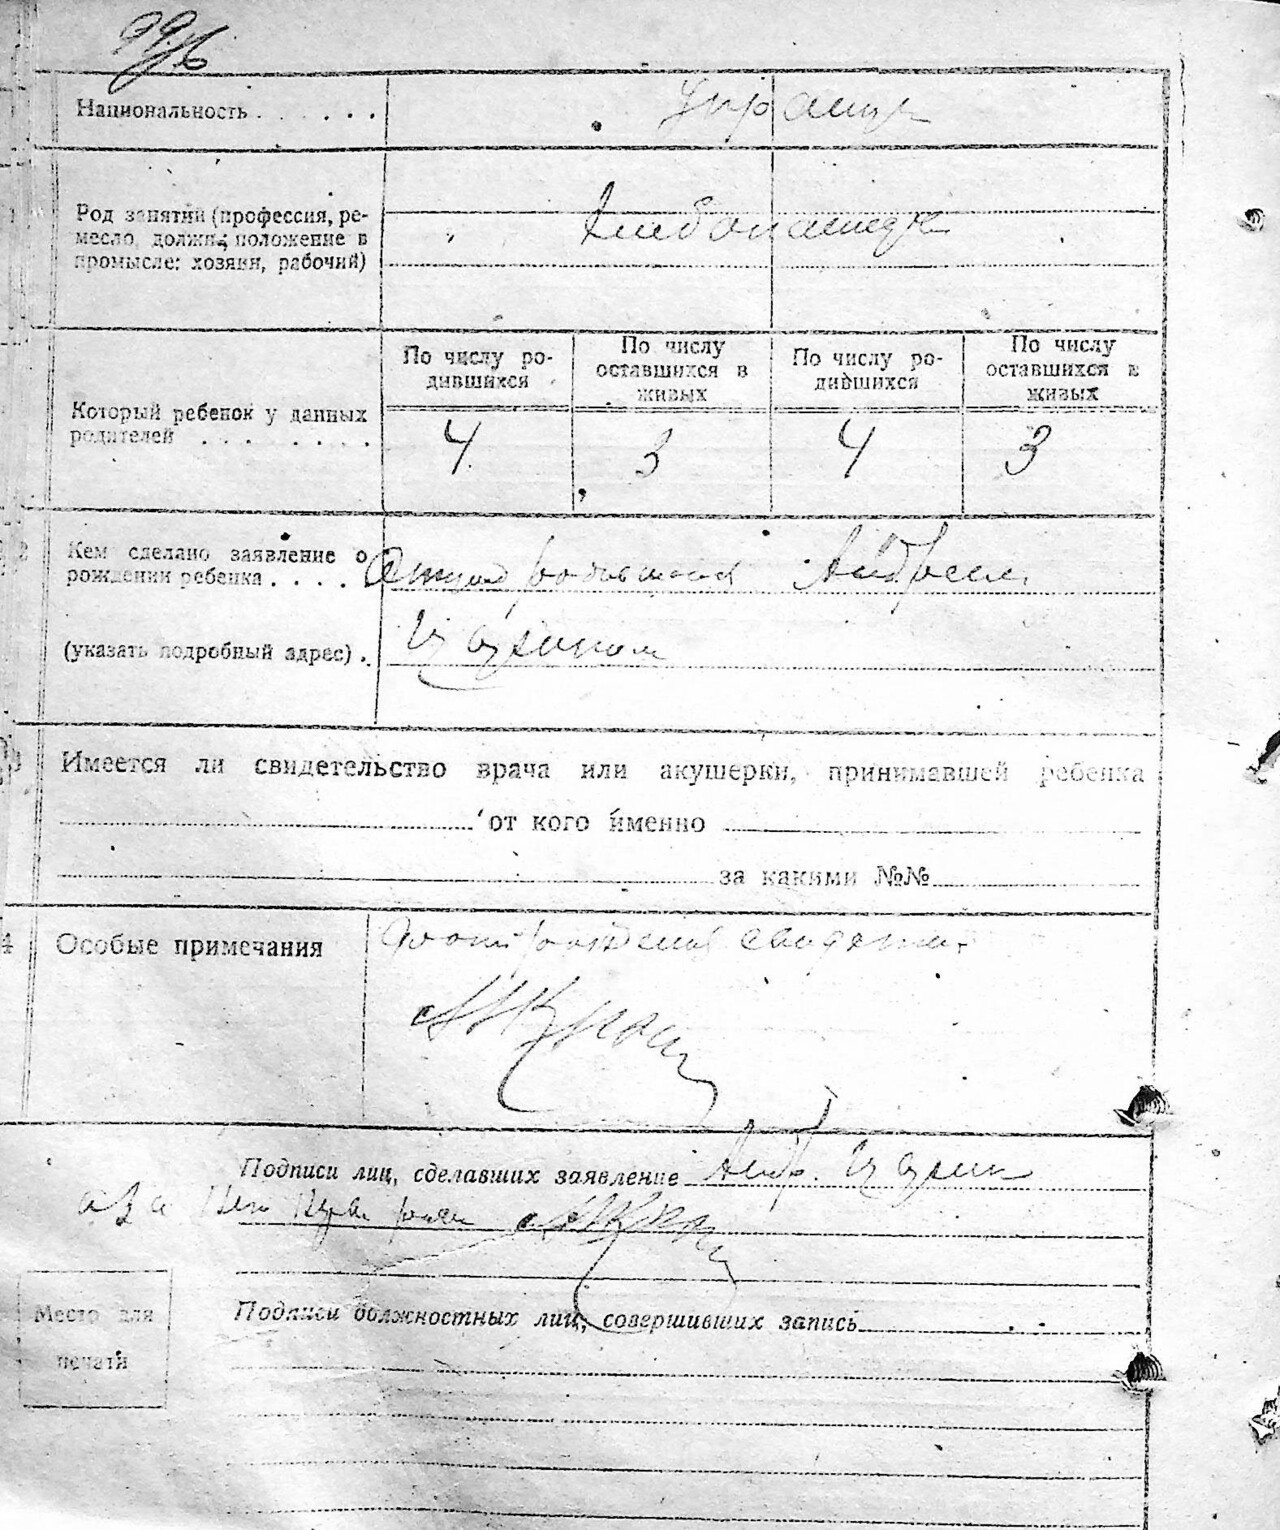 Национальность . . . . . .
Украинц
Род занятий (профессия, ре-
месло, должн, положение в
промысле: хозяин, рабочий)
Хлебопашец
По числу ро-
дившихся
По числу
оставшихся в
живых
По числу ро-
дившихся
По числу
оставшихся в
живых
Который ребенок у данных
родителей . . . . . . . .
4 3 4 3
Кем сделано заявление о
рождении ребенка . . . .
Отцом родившегося Андреем
(указать подробный адрес) .
Имеется ли свидетельство врача или акушерки, принимавшей ребенка
от кого именно
за какими №№
4 Особые примечания
рождения
Подписи лиц, сделавших заявление Андр.
Место для
печати
Подписи должностных лиц, совершивших запись